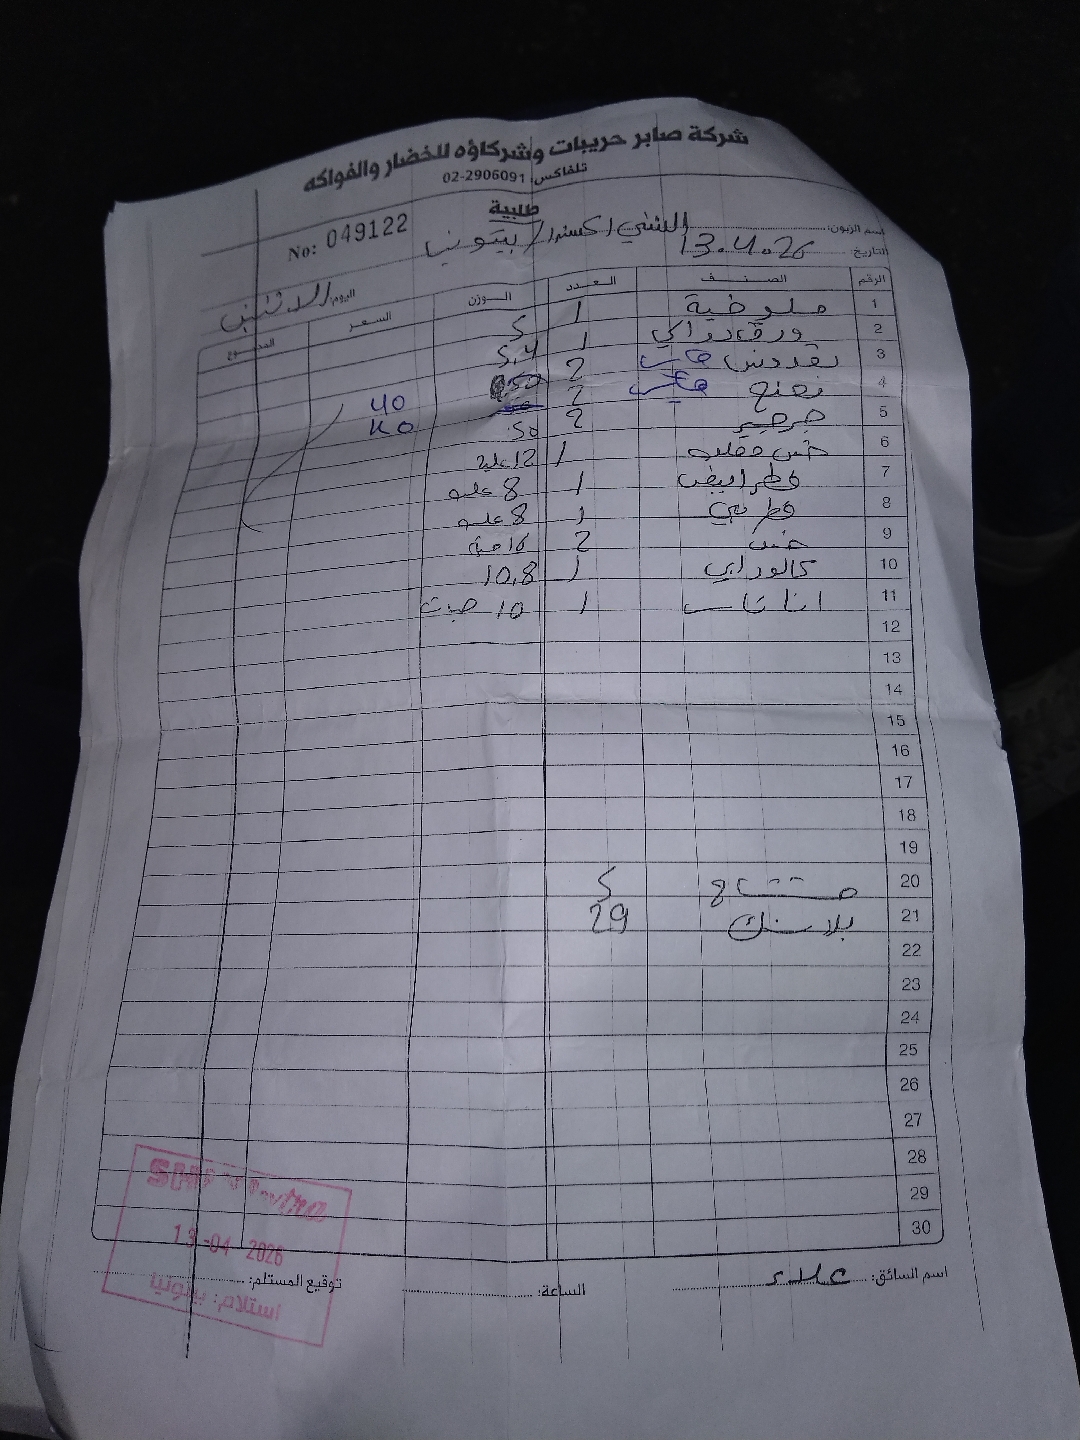 شركة صابر حريبات وشركاؤه للخضار والفواكه
تلفاكس: 02-2906091
طلبية
No: 049122
اسم الزبون: الشني اكسترا / بيتونيا
التاريخ: 13.4.26
اليوم: الاثنين
الرقم الصنف العدد الوزن السعر المجموع
1 ملوخية 1 5
2 ورق دوالي 1 5,4
3 بقدونس 2 50 40
4 نعنع 2 40
5 جرجير 2 50
6 خس 1 12 علبة
7 فطر 1 8 علبه
8 فطر بني 1 8 علبه
9 خس 2 16 حبة
10 كالورابي 1 10,8
11 اناناس 1 10 حبات
12
13
14
15
16
17
18
19
20 مشتاح 5
21 بلاستك 29
22
23
24
25
26
27
28
29
30
اسم السائق: علاء الساعة: توقيع المستلم:
13-04 2026
استلام: بيتونيا